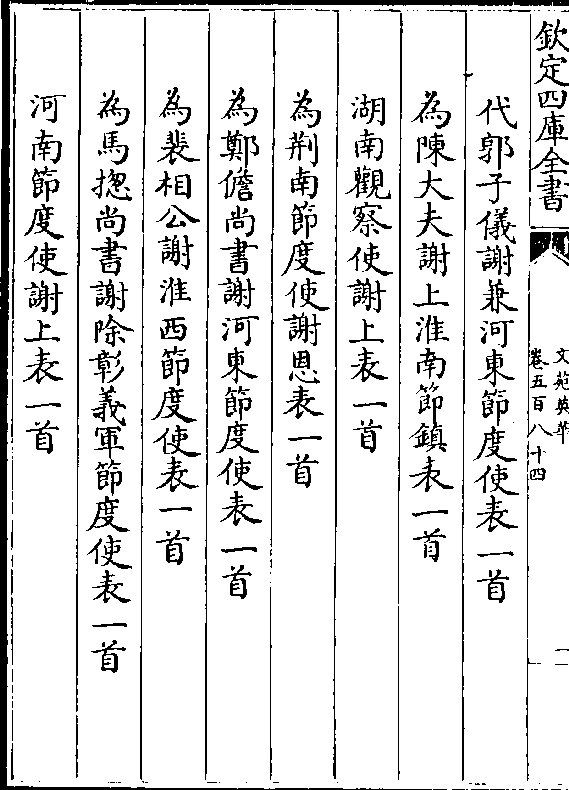 欽定四庫全書
文苑英華
卷五百八十四
代郭子儀謝兼河東節度使表一首
為陳大夫謝上淮南節鎮表一首
湖南觀察使謝上表一首
為荆南節度使謝恩表一首
為鄭儋尚書謝河東節度使表一首
為裴相公謝淮西節度使表一首
為馬揔尚書謝除彰義軍節度使表一首
河南節度使謝上表一首